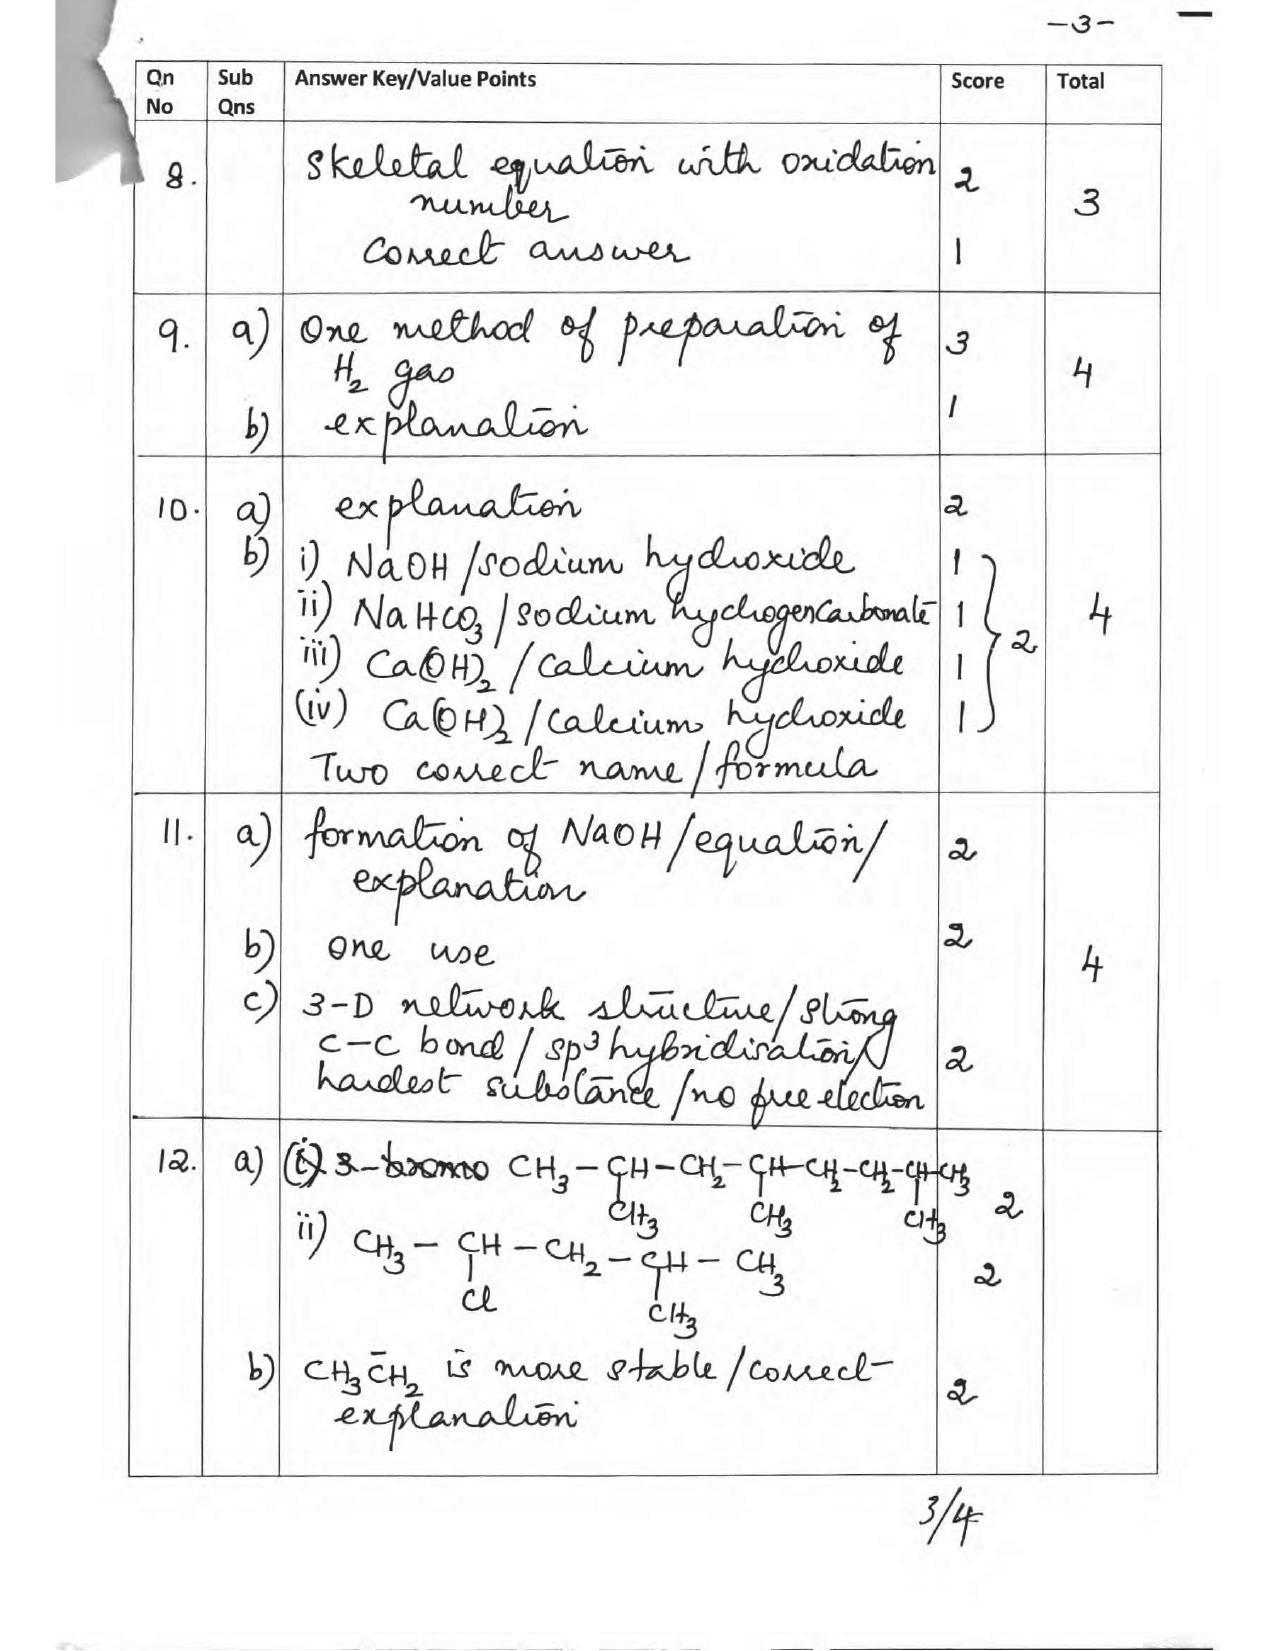 -3-
Qn No Sub Qns Answer Key/Value Points Score Total
8. Skeletal equation with oxidation 2 3
number
Correct answer 1
9. a) One method of preparation of 3 4
H2 gas
b) explanation 1
10. a) explanation 2
b) i) NaOH/sodium hydroxide 1
ii) NaHCO3/sodium hydrogencarbonate 1 2 4
iii) Ca(OH)2/calcium hydroxide 1
(iv) Ca(OH)2/calcium hydroxide 1
Two correct name/formula
11. a) formation of NaOH/equation/ 2
explanation
b) One use 2 4
c) 3-D network structure/strong
C-C bond/sp³ hybridisation/
hardest substance/no free electron 2
12. a) (i) 3-bromo CH3-CH-CH2-CH-CH2-CH2-CH-CH3
CH3 CH3 CH3 2
ii) CH3-CH-CH2-CH-CH3 2
Cl CH3
b) CH3C̄H2 is more stable/correct 2
explanation
3/4